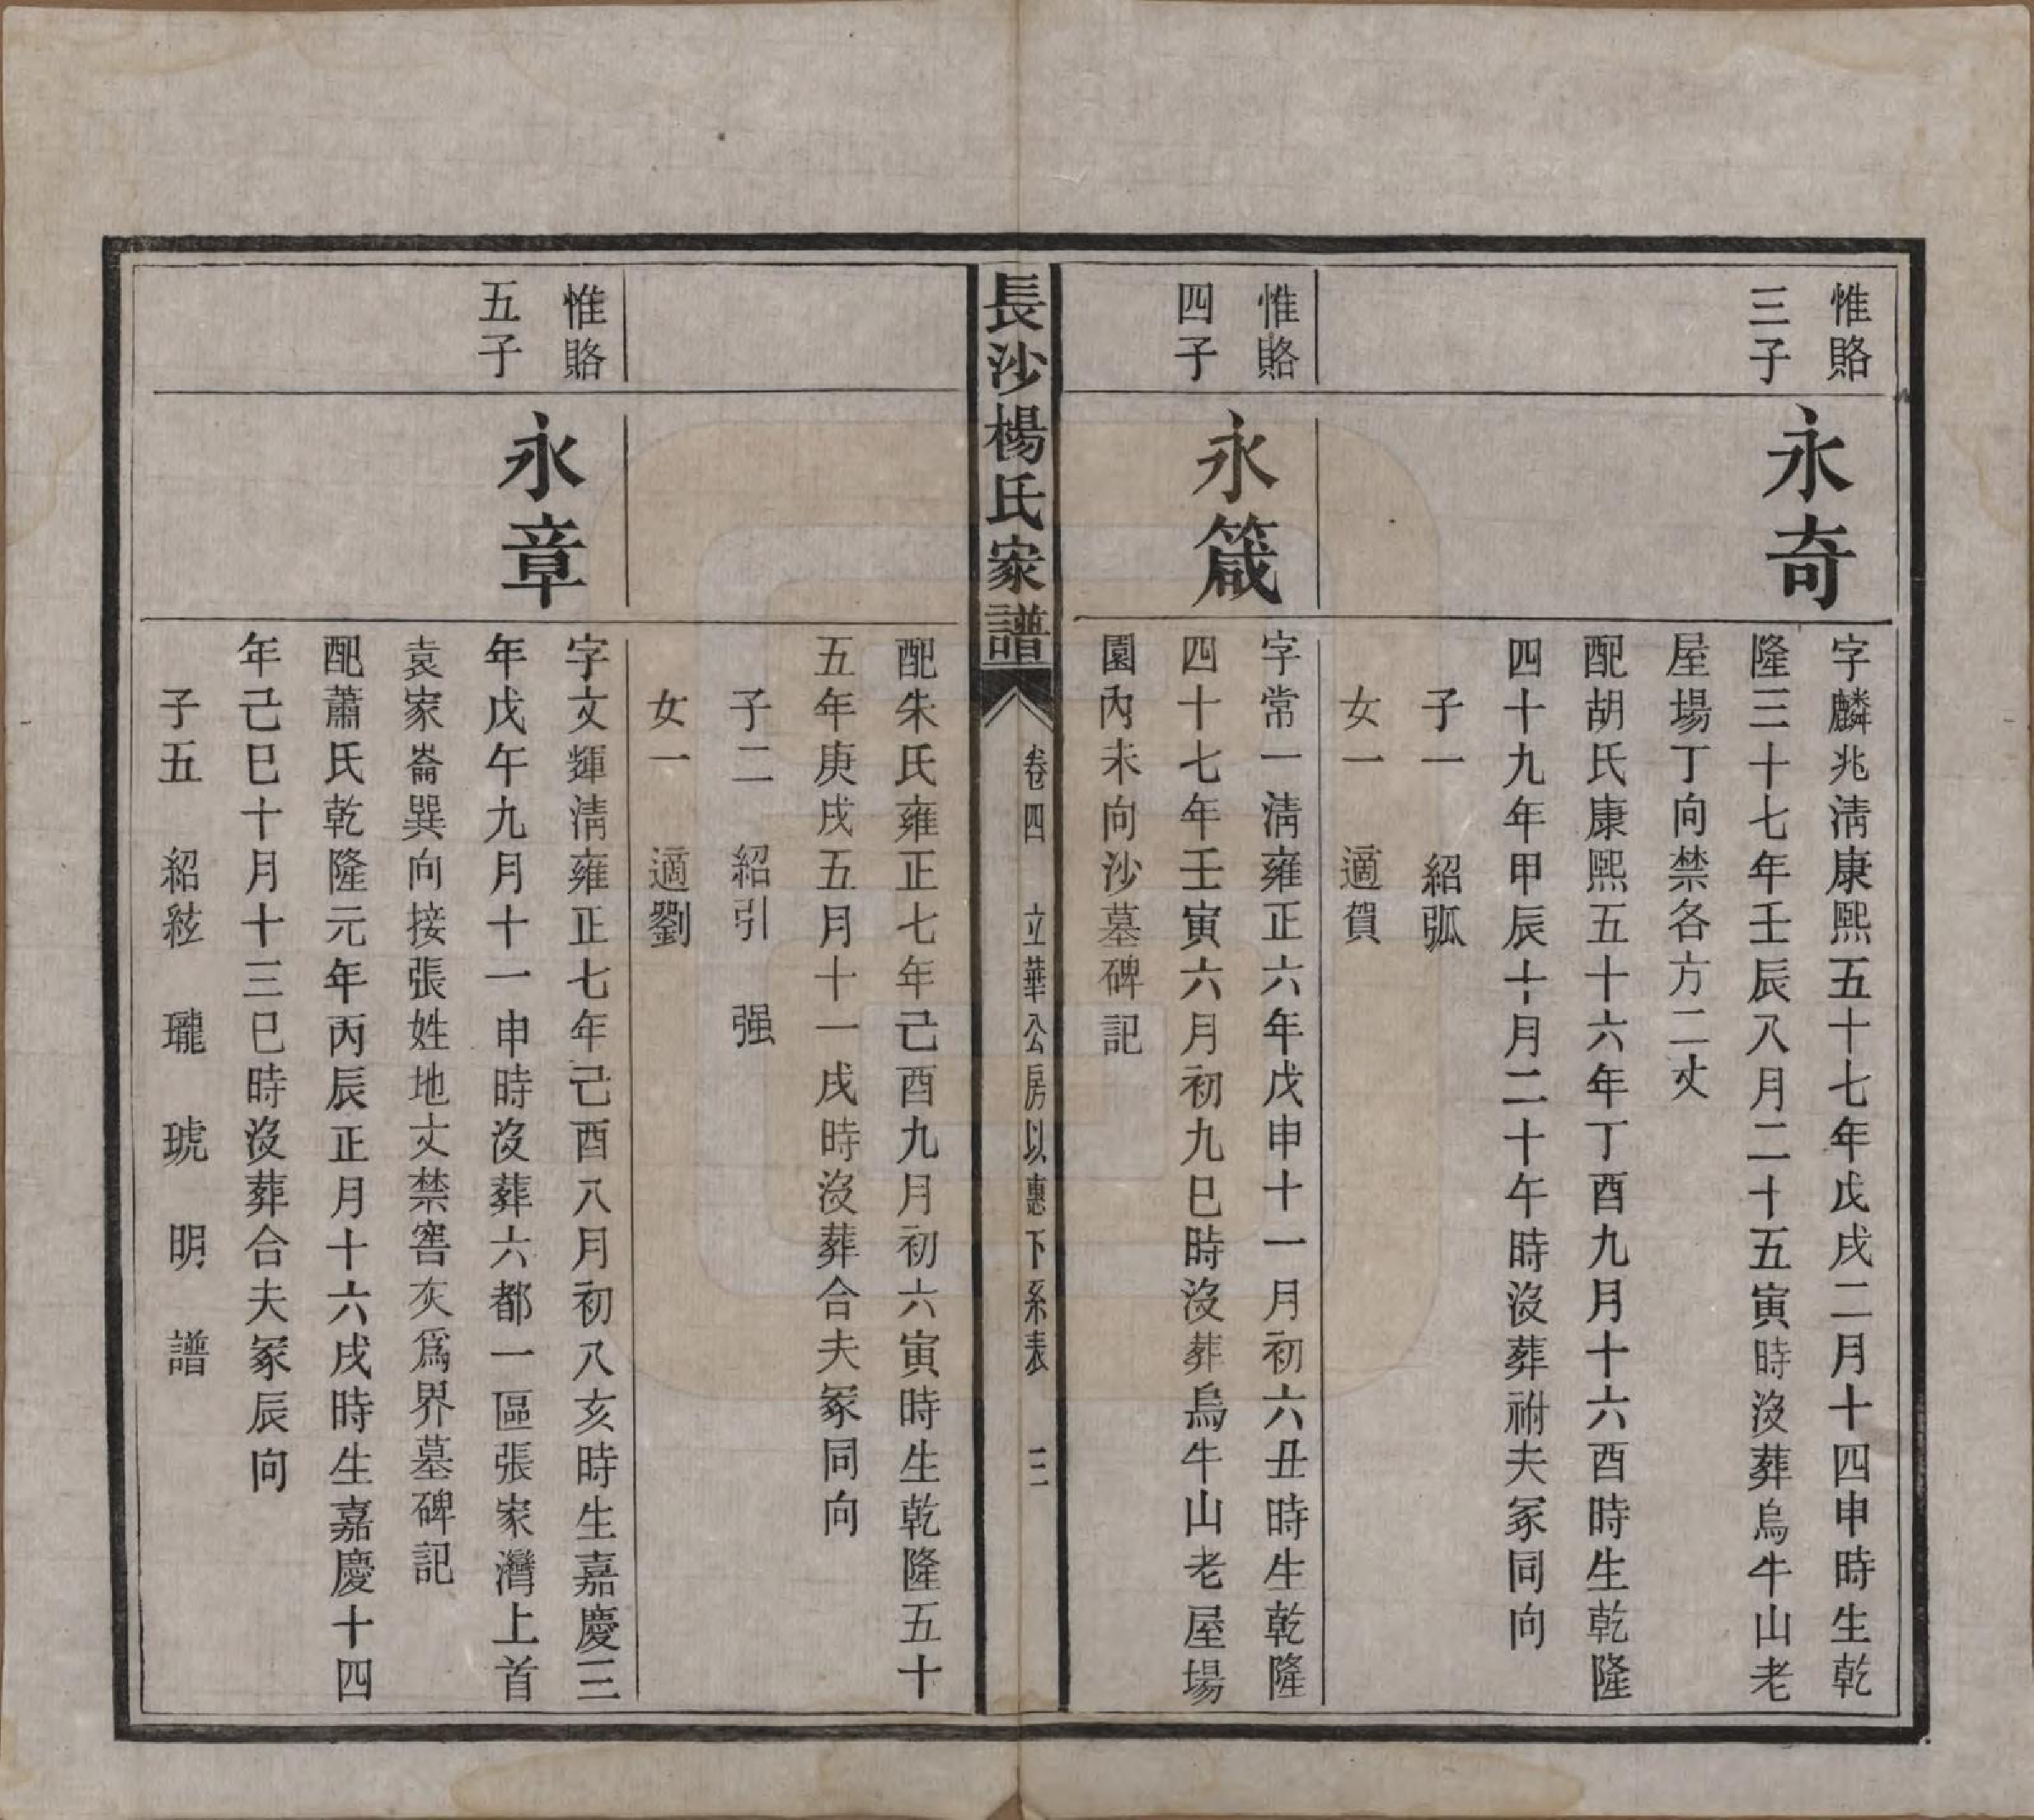 惟賂
三子
永奇
字麟兆淸康熙五十七年戊戌二月十四申時生乾
隆三十七年壬辰八月二十五寅時沒葬烏牛山老
屋場丁向禁各方二丈
配胡氏康熙五十六年丁酉九月十六酉時生乾隆
四十九年甲辰十月二十午時沒葬祔夫冢同向
子一 紹弧
女一 適賀
惟賂
四子
永箴
字常一淸雍正六年戊申十一月初六丑時生乾隆
四十七年壬寅六月初九巳時沒葬烏牛山老屋場
園內未向沙墓碑記
長沙楊氏家譜
卷四 立華公房以惠下系表 三
配朱氏雍正七年己酉九月初六寅時生乾隆五十
五年庚戌五月十一戌時沒葬合夫冢同向
子二 紹引 强
女一 適劉
惟賂
五子
永章
字文輝淸雍正七年己酉八月初八亥時生嘉慶三
年戊午九月十一申時沒葬六都一區張家灣上首
袁家崙巽向接張姓地丈禁窖灰爲界墓碑記
配蕭氏乾隆元年丙辰正月十六戌時生嘉慶十四
年己巳十月十三巳時沒葬合夫冢辰向
子五 紹紘 瓏 琥 明 譜